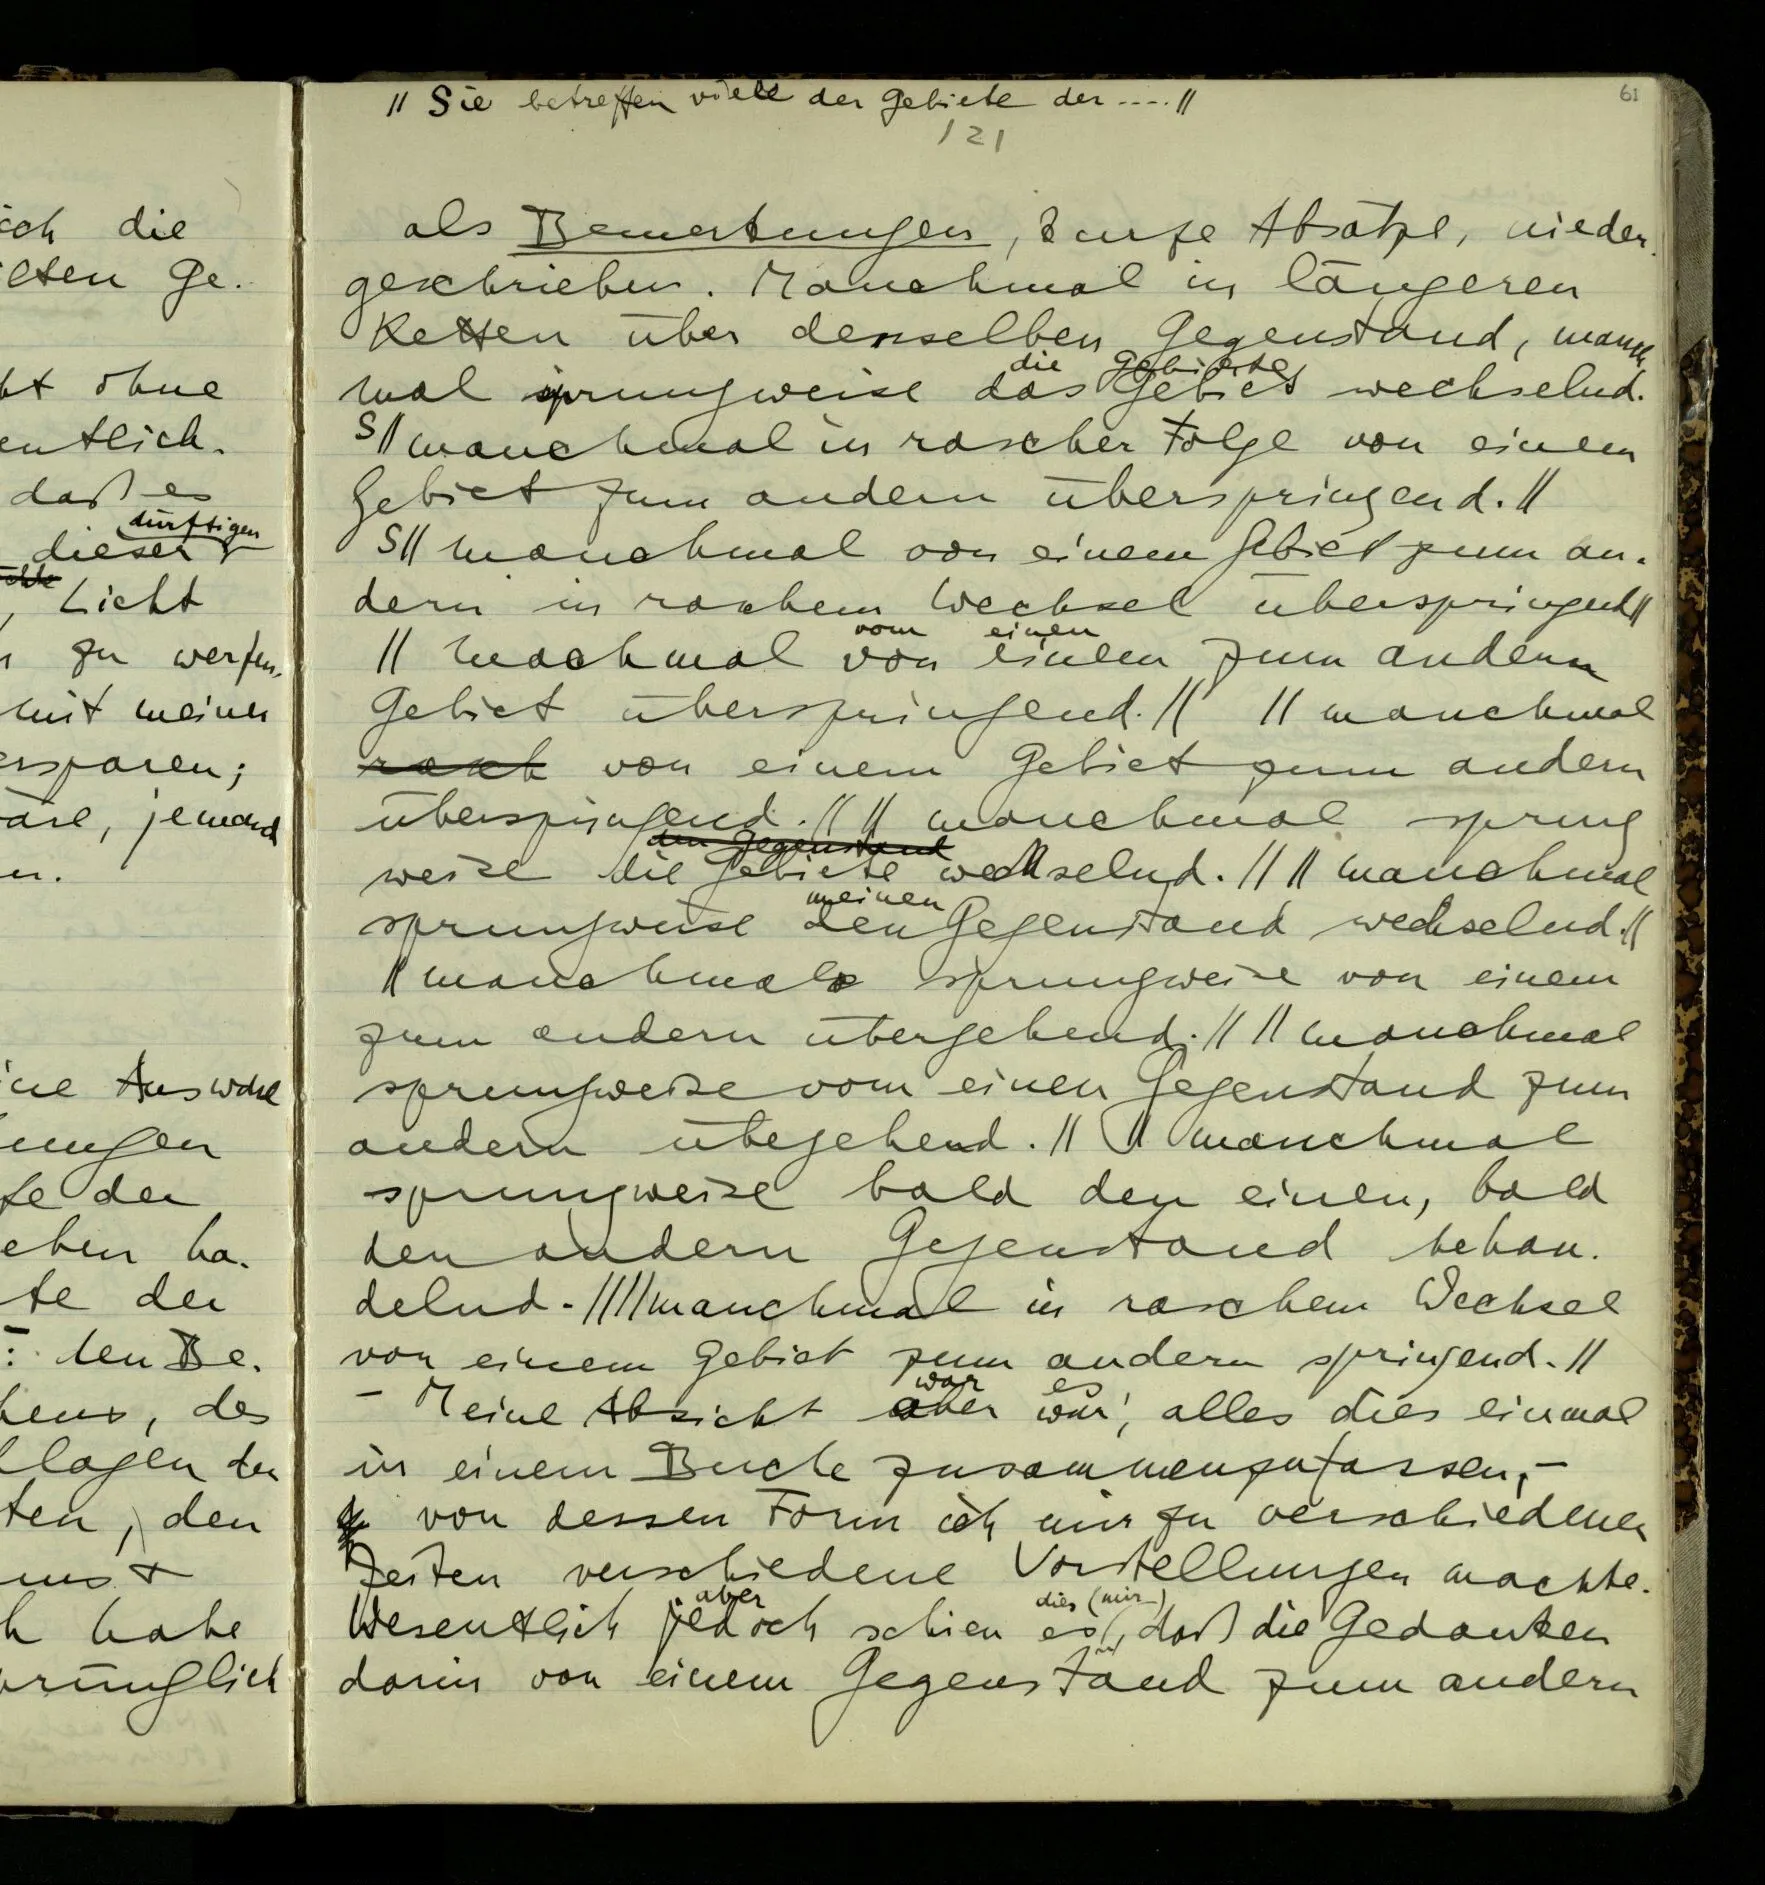 ich die
ilten Ge-
ht ohne
entlich.
daß es
dürftigen
dieser
, Licht
zu werfen,
mit meinen
ersparen;
äre, jemand
en.
ine Auswahl
ungen
fe der
eben ha-
te der
: den Be-
hens, des
llagen der
ten, den
uns +
h habe
rünglich
61
// Sie betreffen viele der Gebiete der ---- //
121
als Bemerkungen, kurze Absätze, nieder-
geschrieben. Manchmal in längeren
Ketten über denselben Gegenstand, manch
die Gebiete
mal sprungweise das Gebiet wechselnd.
S// manchmal in rascher Folge von einem
Gebiet zum andern überspringend. //
S// manchmal von einem Gebiet zum an-
dern in raschem Wechsel überspringend//
vom einen
// machmal von einem zum andern
Gebiet überspringend. // // manchmal
rasch von einem Gebiet zum andern
überspringend. // // manchmal sprung
den Gegenstand
weise die Gebiete wechselnd. // // manchmal
meinen
sprungweise den Gegenstand wechselnd. //
// manchmal sprungweise von einem
zum andern übergehend. // // manchmal
sprungweise vom einen Gegenstand zum
andern übegehend. // // manchmal
sprungweise bald den einen, bald
den andern Gegenstand behan-
delnd. // // manchmal in raschem Wechsel
von einem Gebiet zum andern springend. //
war es
– Meine Absicht aber war, alles dies einmal
in einem Buche zusammenzufassen, –
von dessen Form ich mir zu verschiedenen
Zeiten verschiedene Vorstellungen machte.
aber dies (mir)
Wesentlich jedoch schien es, daß die Gedanken
darin von einem Gegenstand zum andern